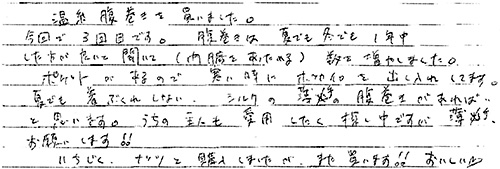 温糸 腹巻きを買いました。
今回で 3回目です。 腹巻きは 夏でも冬でも 1年中
した方が良いと聞いて (内臓をあたためる) 数を増やしました。
ポケットが あるので 寒い時に ホッカイロを 出し入れしてます。
夏でも着ぶくれしない、シルクの 薄手の 腹巻きがあれば…
と思います。 うちの主人も 愛用したく 探し中ですが 薄手、
お願いします!!
いちじく、ナッツと 購入しましたが、また買います!! おいしい